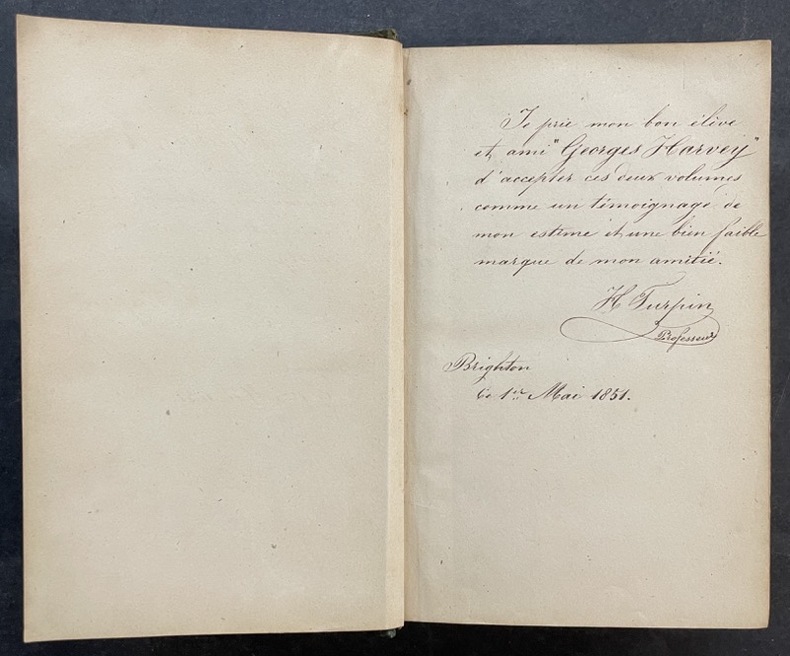 Je prie mon bon élève
et ami "Georges Harvey"
d'accepter ces deux volumes
comme un témoignage de
mon estime et une bien faible
marque de mon amitié.
H Turpin
Professeur
Brighton
Ce 1er Mai 1851.